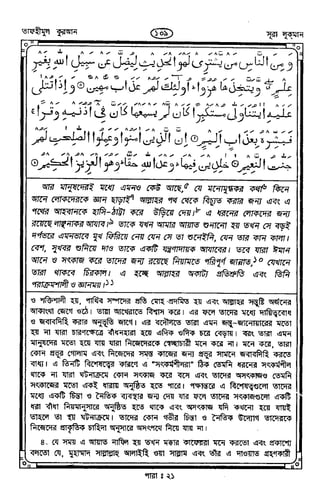 তাফহীমুল কুরআন ১০৯ সূরা লুকমান
وَمِنَ النَّاسِ مَنْ يَّشْتَرِىْ لَهْوَ الْحَدِيْثِ لِيُضِلَّ عَنْ سَبِيْلِ اللهِ بِغَيْرِ
عِلْمٍ ۖ وَّيَتَّخِذَهَا هُزُوًا ۚ اُولٰئِكَ لَهُمْ عَذَابٌ مُّهِيْنٌ ۞ وَاِذَا تُتْلٰى
عَلَيْهِ اٰيٰتُنَا وَلّٰى مُسْتَكْبِرًا كَاَنْ لَّمْ يَسْمَعْهَا كَاَنَّ فِىْ اُذُنَيْهِ وَقْرًا ۚ
فَبَشِّرْهُ بِعَذَابٍ اَلِيْمٍ ۞ اِنَّ الَّذِيْنَ اٰمَنُوْا وَعَمِلُوا الصّٰلِحٰتِ لَهُمْ
جَنّٰتُ النَّعِيْمِ ۞ خٰلِدِيْنَ فِيْهَا ۚ وَعْدَ اللهِ حَقًّا ۚ وَهُوَ الْعَزِيْزُ الْحَكِيْمُ ۞
আর মানুষদেরই মধ্যে এমনও কেউ আছে,৫ যে মনোমুগ্ধকর কথা৬ কিনে
আনে লোকদেরকে জ্ঞান ছাড়াই৭ আল্লাহর পথ থেকে বিচ্যুত করার জন্য এবং এ
পথের আহবানকে হাসি-ঠাট্টা করে উড়িয়ে দেয়।৮ এ ধরনের লোকদের জন্য
রয়েছে লাঞ্ছনাকর আযাব।৯ তাকে যখন আমার আয়াত শুনানো হয় তখন সে বড়ই
দর্পভরে এমনভাবে মুখ ফিরিয়ে নেয় যেন সে তা শুনেইনি, যেন তার কান কালা।
বেশ, সুখবর শুনিয়ে দাও তাকে একটি যন্ত্রণাদায়ক আযাবের। তবে যারা ঈমান
আনে ও সৎকাজ করে তাদের জন্য রয়েছে নিয়ামতে পরিপূর্ণ জান্নাত,১০ যেখানে
তারা থাকবে চিরকাল। এ হচ্ছে আল্লাহর অকাট্য প্রতিশ্রুতি এবং তিনি
পরাক্রমশালী ও জ্ঞানময়।১১
ও শক্তিশালী হয়, পার্থিব সম্পদের প্রতি মোহ প্রদমিত হয় এবং আল্লাহর সন্তুষ্টি অর্জনের
আকাংখা জেগে ওঠে। তারা আখেরাতে বিশ্বাস করে। এর ফলে তাদের মধ্যে দায়িত্ববোধ
ও জবাবদিহি করার অনুভূতি জাগে। এর বদৌলতে তারা এমন জন্তু-জানোয়ারের মতো
হয় না যারা চারণক্ষেত্রে বাঁধনহারা হয়ে এদিক ওদিক চরে বেড়ায়। বরং তারা এমন
মানুষদের মতো হয়ে যায় যারা নিজেদেরকে স্বেচ্ছাচারী মনে করে না। মনে করে, তারা
কোন প্রভুর গোলাম এবং নিজেদের সমস্ত কাজের জন্য প্রভুর সামনে জবাবদিহি করতে
বাধ্য। এ তিনটি বিশেষত্বের কারণে এ "সৎকর্মশীলরা" ঠিক তেমনি ধরনের সৎকর্মশীল
থাকে না যারা ঘটনাক্রমে কোন সৎকাজ করে বসে এবং তাদের অসৎকাজও তেমনি
সৎকাজের মতো একই ধারায় অনুষ্ঠিত হতে পারে। পক্ষান্তরে এ বিশেষত্বগুলো তাদের
মধ্যে একটি চিন্তা ও নৈতিক ব্যবস্থার জন্ম দেয় যার ফলে তাদের সৎকাজগুলো একটি
ধরা বাঁধা নিয়মানুসারে অনুষ্ঠিত হতে থাকে এবং অসৎকাজ যদি কখনো হয়ে যায়ই
তাহলে তা হয় ঘটনাক্রমে। তাদের কোন গভীর চিন্তা ও নৈতিক উদ্যোগ তাদেরকে
নিজেদের প্রাকৃতিক চাহিদা অনুসারে অসৎপথে নিয়ে যায় না।
৪. যে সময় এ আয়াত নাযিল হয় তখন মক্কার কাফেররা মনে করতো এবং প্রকাশ্যে
বলতো যে, মুহাম্মাদ সাল্লাল্লাহু আলাইহি ওয়া সাল্লাম এবং তাঁর এ দাওয়াত গ্রহণকারী
পারা : ২১